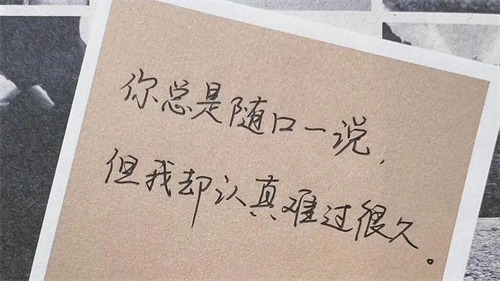 你总是随口一说，
但我却认真难过很久。